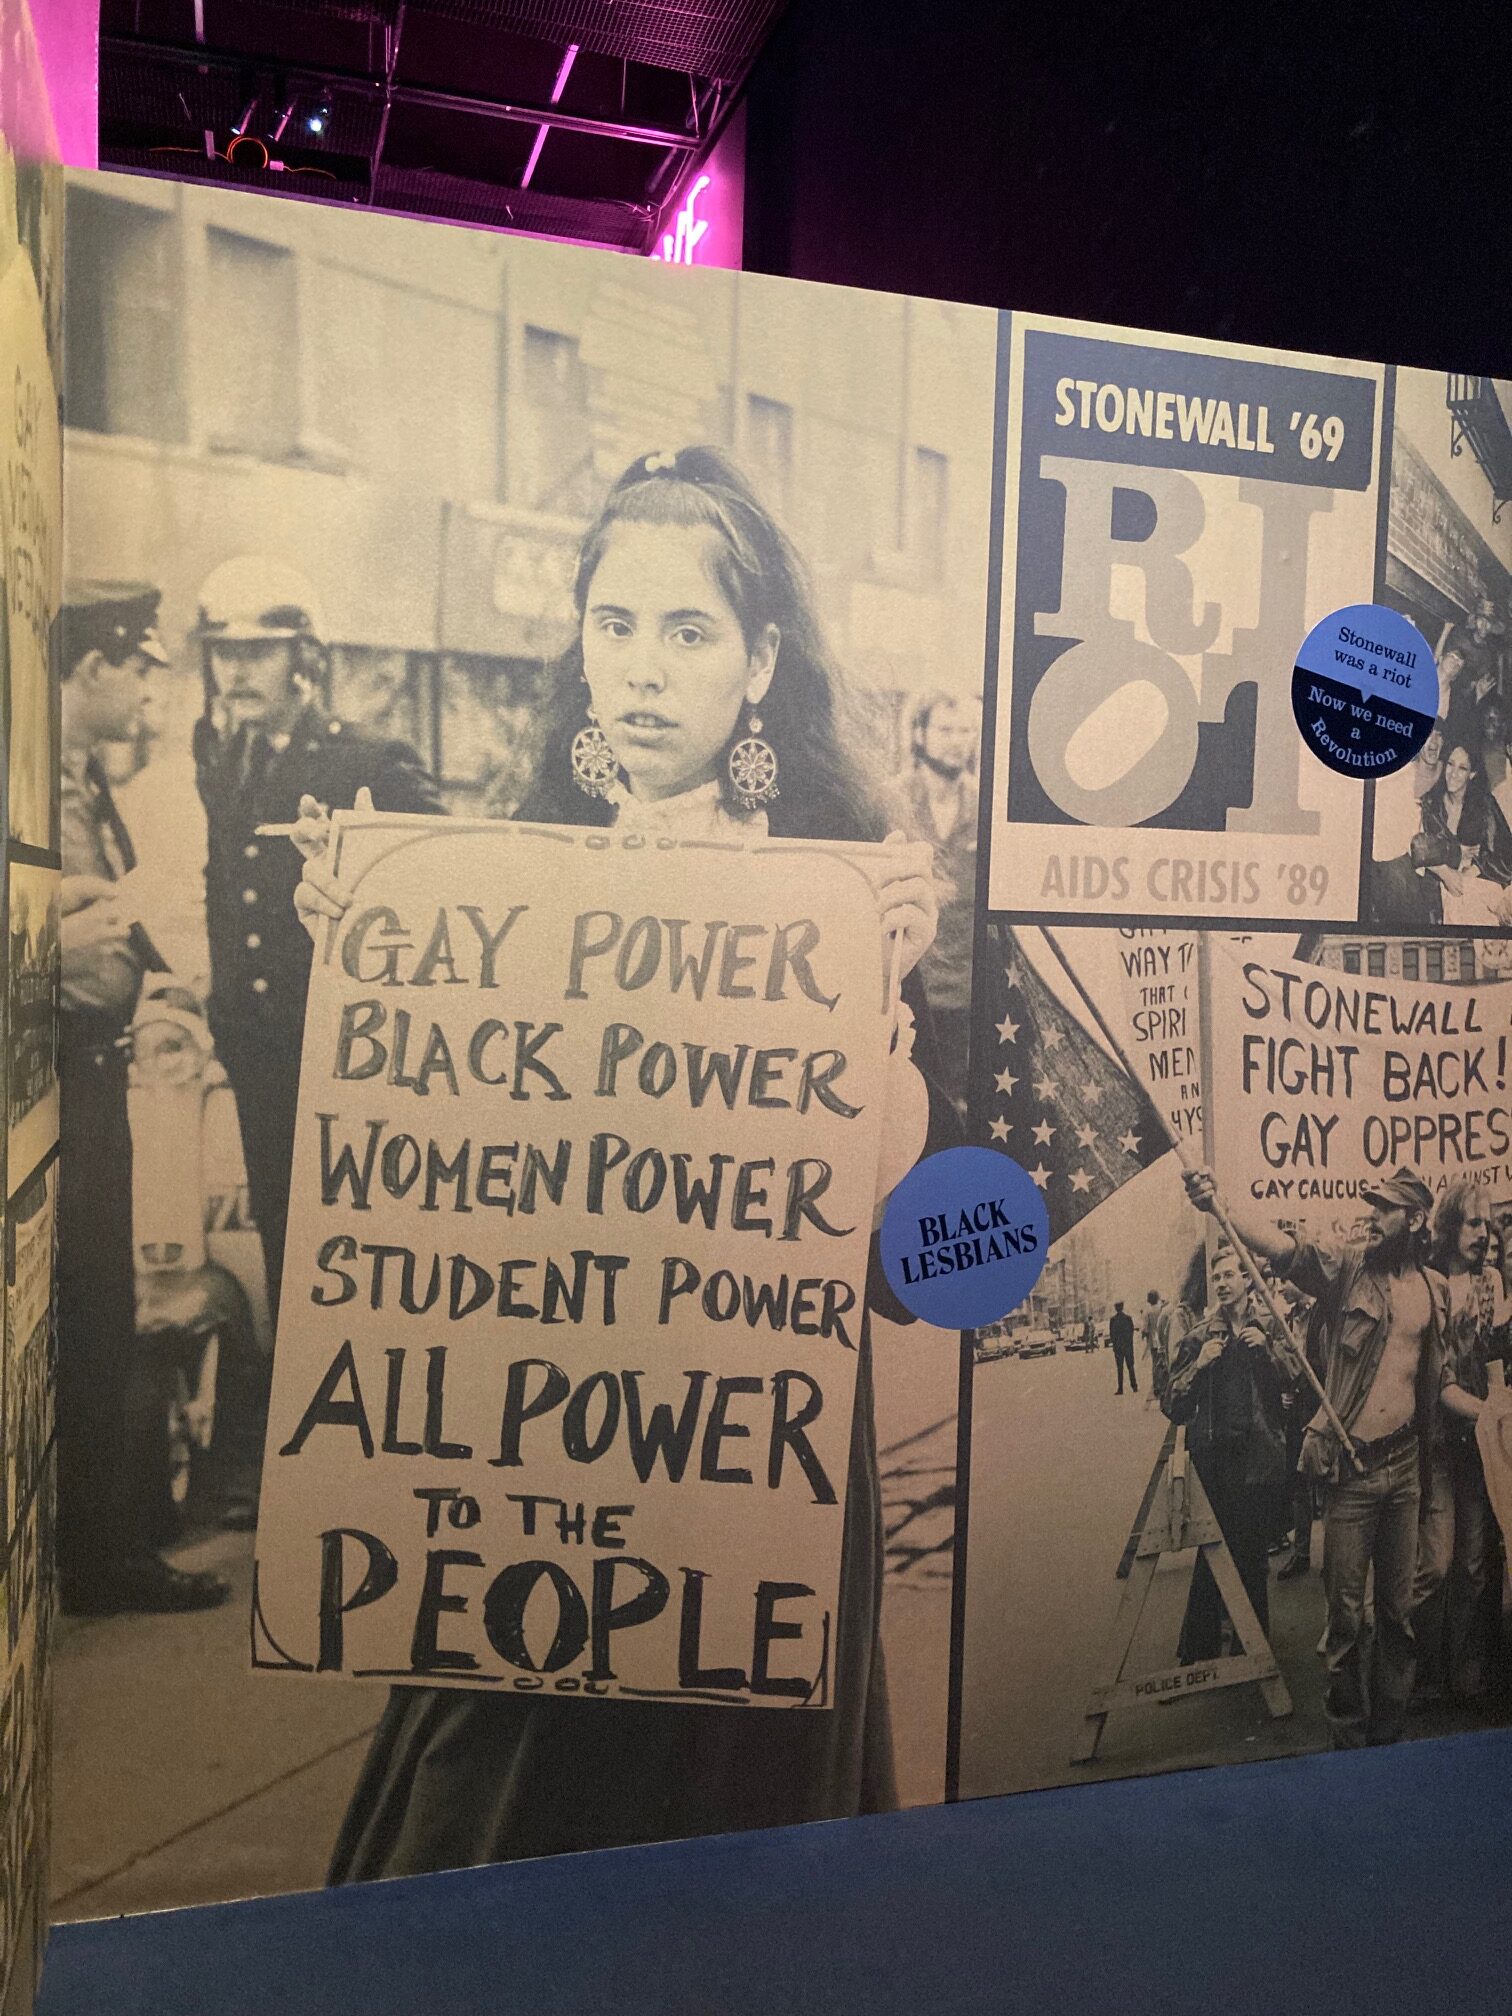 GAY POWER
BLACK POWER
WOMEN POWER
STUDENT POWER
ALL POWER
TO THE
PEOPLE
STONEWALL '69
RIOT
AIDS CRISIS '89
Stonewall
was a riot
Now we need
a
Revolution
BLACK
LESBIANS
WAY
THAT
MEN
STONEWALL
FIGHT BACK!
GAY OPPRES
GAY CAUCUS-
POLICE DEPT